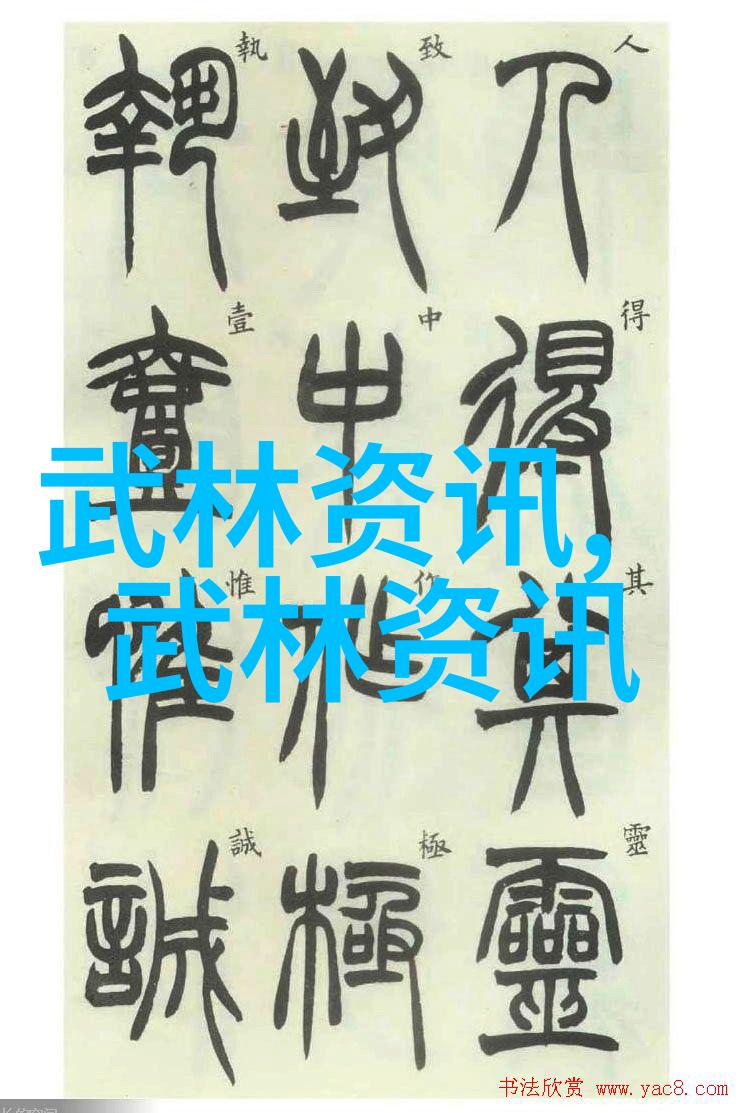 人得其靈
人得其靈
致中作極
致中作極
執壹惟誠
執壹惟誠
武林资讯,
武林资讯
书法欣赏 www.yac8.com